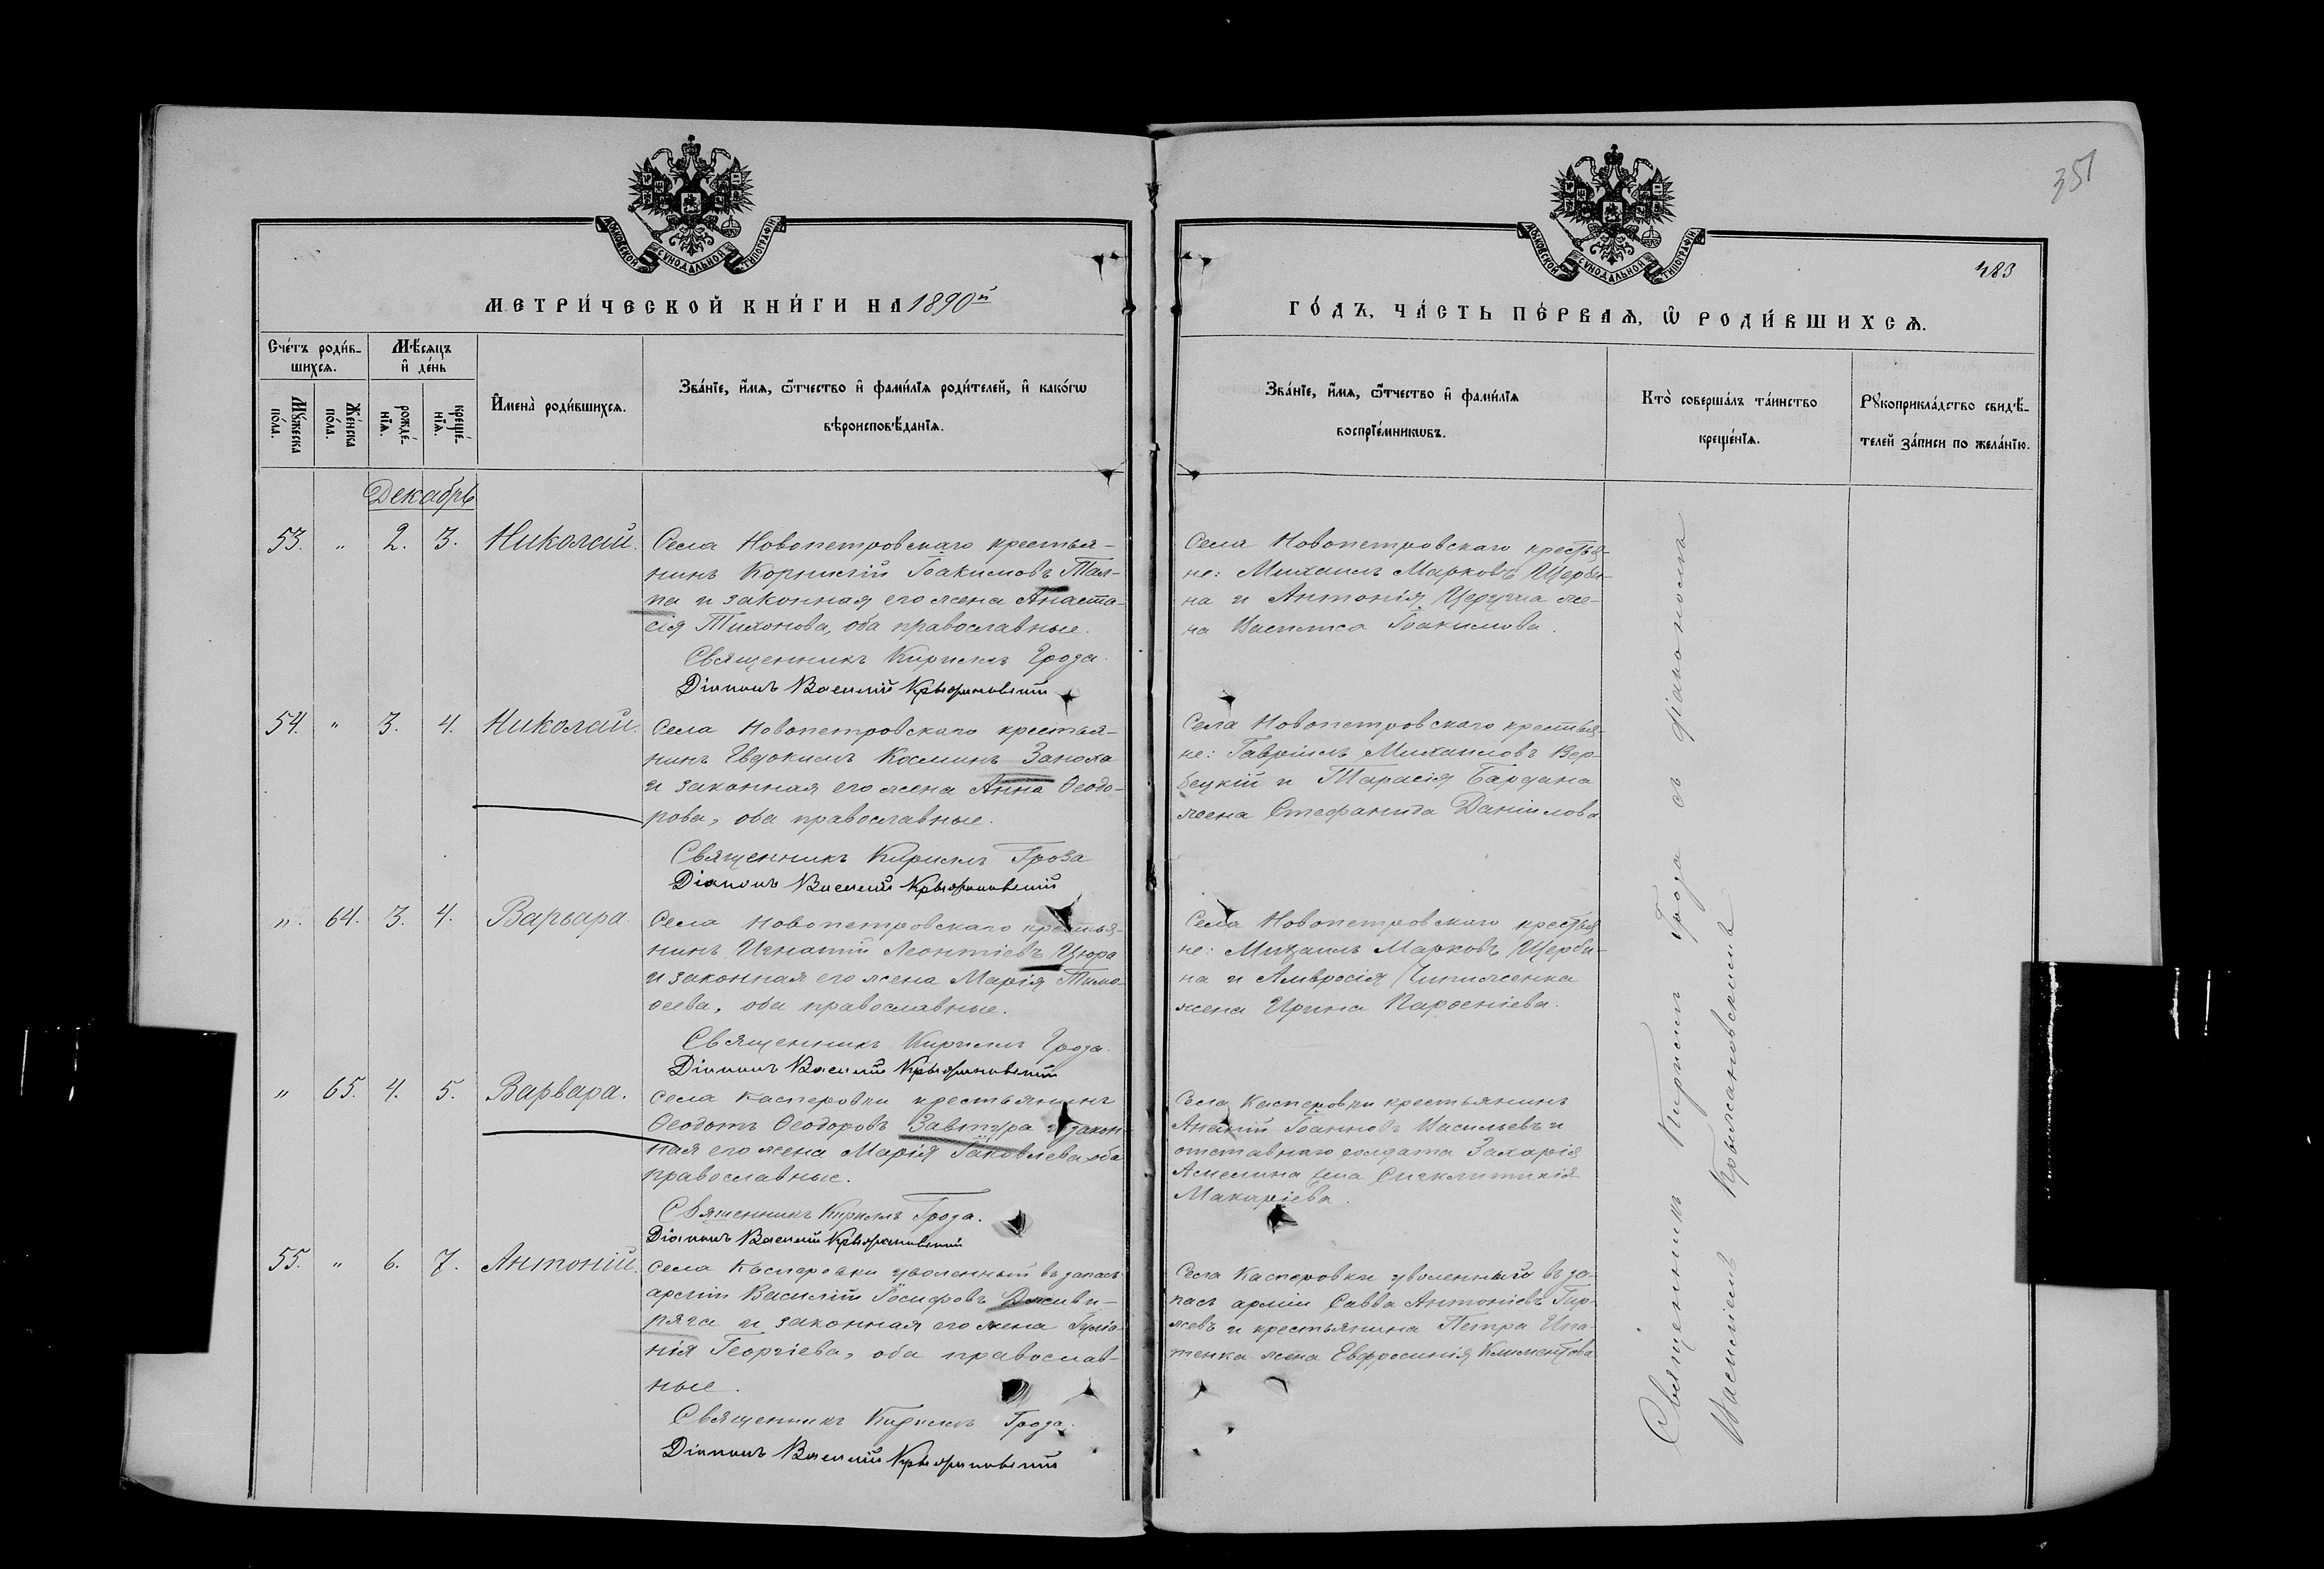 351
МОСКОВСКОЙ СУНОДАЛЬНОЙ ТИПОГРАФІИ
МЕТРИ́ЧЕСКОЙ КНИ́ГИ НА 1890й
Сче́тъ роди́в-
шихсѧ.
Мѣ́сѧцъ
и҆ де́нь
Мꙋ́жеска
по́ла.
Же́нска
по́ла.
рожде́-
нїѧ.
креще́-
нїѧ.
И҆мена̀ роди́вшихсѧ.
Зва́нїе, и҆́мѧ, ѻ҆́тчество и҆ фами́лїѧ роди́телей, и҆ како́гѡ
вѣроисповѣ́данїѧ.
Декабрь
53. " 2. 3. Николай.
Села Новопетровскаго крестья-
нинъ Корнилій Іоакимовъ Тал-
па и законная его жена Анаста-
сія Тихонова, оба православные.
Священникъ Кириллъ Гроза.
Діаконъ Василій Крыжановскій
54. " 3. 4. Николай.
Села Новопетровскаго крестья-
нинъ Евдокимъ Косминъ Заноха
и законная его жена Анна Ѳеодо-
рова, оба православные.
Священникъ Кириллъ Гроза
Діаконъ Василій Крыжановскій
". 64. 3. 4. Варвара.
Села Новопетровскаго крестья-
нинъ Игнатій Леонтіевъ Цюра
и законная его жена Марія Тимо-
ѳеева, оба православные.
Священникъ Кириллъ Гроза.
Діаконъ Василій Крыжановскій
" 65. 4. 5. Варвара.
Села Касперовки крестьянинъ
Ѳеодотъ Ѳеодоровъ Завтура и закон-
ная его жена Марія Іаковлева, оба
православные.
Священникъ Кириллъ Гроза.
Діаконъ Василій Крыжановскій
55. " 6. 7. Антоній.
Села Касперовки уволенный въ запасъ
арміи Василій Іосифовъ Дживи-
ряга и законная его жена Іуліа-
нія Георгіева, оба православ-
ные.
Священникъ Кириллъ Гроза.
Діаконъ Василій Крыжановскій
МОСКОВСКОЙ СУНОДАЛЬНОЙ ТИПОГРАФІИ
483
ГО́ДЪ, ЧА́СТЬ ПЕ́РВАѦ, Ѡ҆ РОДИ́ВШИХСѦ.
Зва́нїе, и҆́мѧ, ѻ҆́тчество и҆ фами́лїѧ
воспрїе́мникѡвъ.
Кто̀ соверша́лъ та́инство
креще́нїѧ.
Рꙋкоприкла́дство свидѣ́-
телей за́писи по жела́нїю.
Села Новопетровскаго крестья-
не: Михаилъ Марковъ Щерби-
на и Антонія же-
на Василиса Іоакимова.
Села Новопетровскаго крестья-
не: Гавріилъ Михаиловъ Вер-
бецкій и Тарасія Бардана
жена Стефанида Даніилова
Села Новопетровскаго крестья
не: Михаилъ Марковъ Щерби-
на и Амвросія Чипиженка
жена Ирина Парѳеніева.
Села Касперовки крестьянинъ
Іоанновъ Васильевъ и
отставнаго солдата Захарія
Амелина жена Синклитикія
Макаріева.
Села Касперовки уволенный въ за-
пасъ арміи Савва Антоніевъ Гир-
жевъ и крестьянина Петра Игна-
тенка жена Евфросинія Климентова
Священникъ Кириллъ Гроза съ діакономъ
Василіемъ Крыжановскимъ